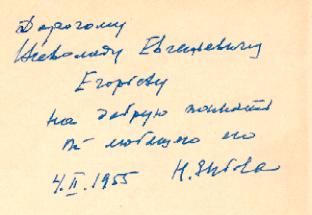 Дорогому
Всеволоду Евгеньевичу
Егорову
на добрую память
от любящего его
4.II.1955